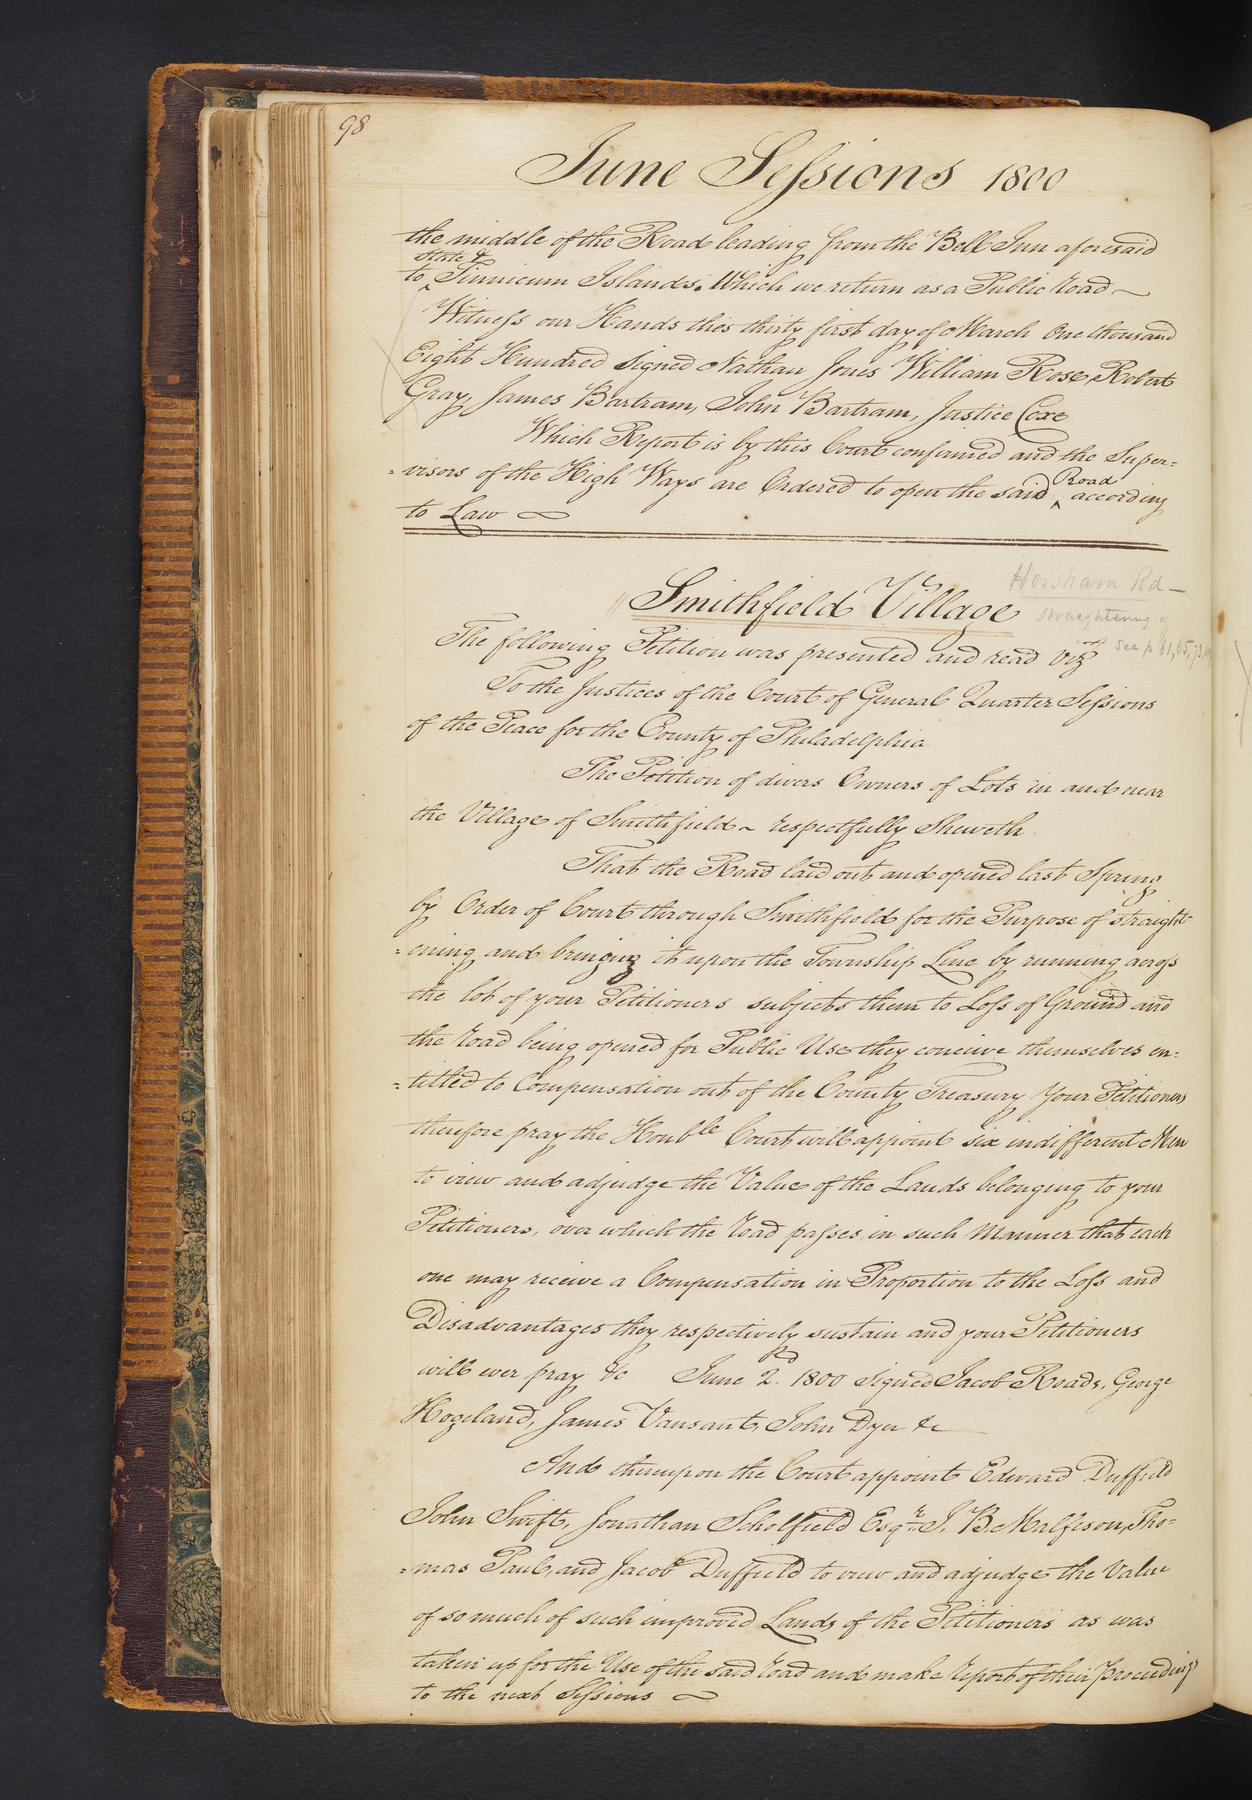 98
June Sessions 1800
the middle of the Road leading from the Bell Inn aforesaid
State &
to Tinnicum Islands. Which we return as a Public Road ~
Witness our Hands this thirty first day of March One thousand
Eight Hundred Signed Nathan Jones William Rose, Robert
Gray, James Bartram, John Bartram, Justice Coxe
Which Report is by this Court confirmed and the Super=
=visors of the High Ways are Ordered to open the said Road according
to Law
Smithfield Village
Horsham Rd —
straightening of
see p 61, 65, 73,
The following Petition was presented and read Vizt
To the Justices of the Court of General Quarter Sessions
of the Peace for the County of Philadelphia
The Petition of divers Owners of Lots in and near
the Village of Smithfield ~ respectfully Sheweth
That the Road laid out and opened last Spring
by Order of Court through Smithfield for the Purpose of straight
=ening and bringing it upon the Township Line by running across
the lot of your Petitioners subjects them to Loss of Ground and
the road being opened for Public Use they conceive themselves en=
=titled to Compensation out of the County Treasury Your Petitioners
therefore pray the Honble Court will appoint six indifferent Men
to view and adjudge the Value of the Lands belonging to your
Petitioners, over which the road passes in such Manner that each
one may receive a Compensation in Proportion to the Loss and
Disadvantages they respectively sustain and your Petitioners
will ever pray &c June 2d. 1800 signed Jacob Roads, George
Hogeland, James Vansant, John Dyer &c
And thereupon the Court appoint Edward Duffield
John Swift, Jonathan Scholfield Esqrs J. B. Malfeson, Tho=
=mas Paul, and Jacob Duffield to view and adjudge the Value
of so much of such improved Lands of the Petitioners as was
taken up for the Use of the said road and make report of their Proceedings
to the next Sessions